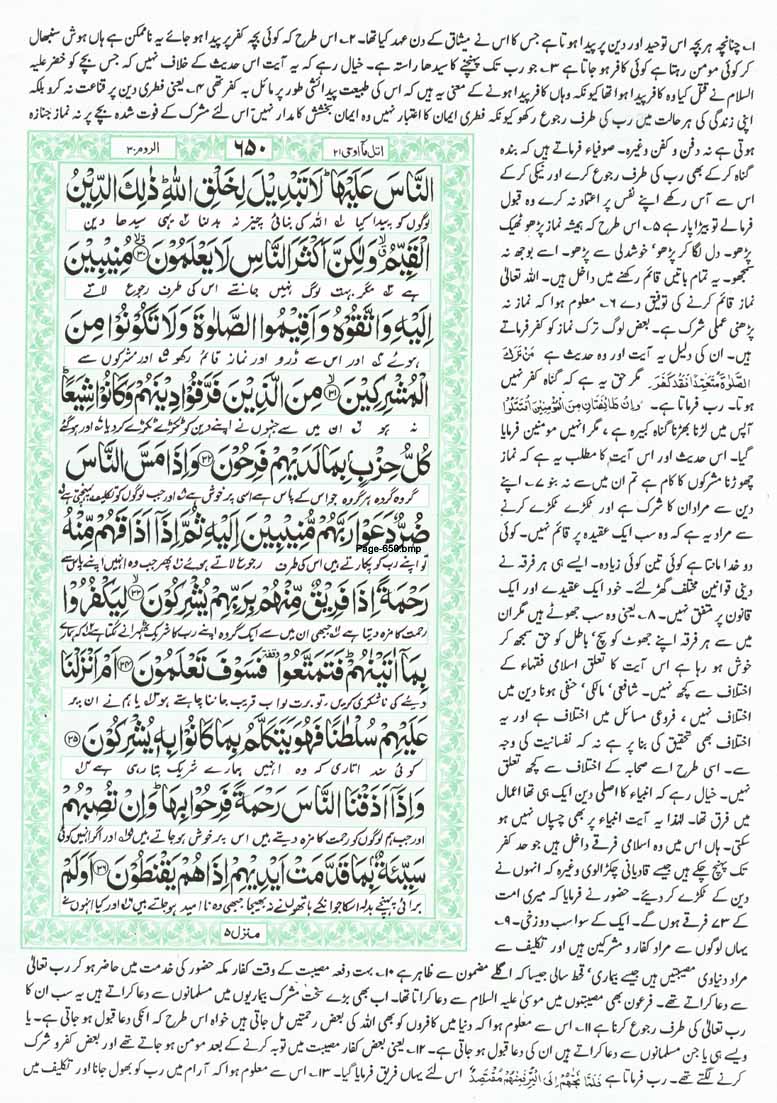 ۱؎ چنانچہ ہر بچہ اس توحید اور دین پر پیدا ہوتا ہے جس کا اس نے میثاق کے دن عہد کیا تھا۔ ۲؎ اس طرح کہ کوئی بچہ کفر پر پیدا ہو جائے یہ ناممکن ہے ہاں ہوش سنبھال
کر کوئی مومن رہتا ہے کوئی کافر ہو جاتا ہے ۳؎ جو رب تک پہنچنے کا سیدھا راستہ ہے۔ خیال رہے کہ یہ آیت اس حدیث کے خلاف نہیں کہ جس بچے کو خضر علیہ
السلام نے قتل کیا وہ کافر پیدا ہوا تھا کیونکہ وہاں کافر پیدا ہونے کے معنی یہ ہیں کہ اس کی طبیعت پیدائشی طور پر مائل بہ کفر تھی ۴؎ یعنی فطری دین پر قناعت نہ کرو بلکہ
اپنی زندگی کی ہر حالت میں رب کی طرف رجوع رکھو کیونکہ فطری ایمان کا اعتبار نہیں وہ ایمان بخشش کا مدار نہیں اسی لئے مشرک کے فوت شدہ بچے پر نہ نماز جنازہ
ہوتی ہے نہ دفن و کفن وغیرہ۔ صوفیاء فرماتے ہیں کہ بندہ
گناہ کر کے بھی رب کی طرف رجوع کرے اور نیکی کر کے
اس سے آس رکھے اپنے نفس پر اعتماد نہ کرے وہ قبول
فرمالے تو بیڑا پار ہے ۵؎ اس طرح کہ ہمیشہ نماز پڑھو ٹھیک
پڑھو۔ دل لگا کر پڑھو' خوشدلی سے پڑھو۔ اسے بوجھ نہ
سمجھو۔ یہ تمام باتیں قائم رکھنے میں داخل ہیں۔ اللہ تعالٰی
نماز قائم کرنے کی توفیق دے ۶؎ معلوم ہوا کہ نماز نہ
پڑھنی عملی شرک ہے۔ بعض لوگ ترک نماز کو کفر فرماتے
ہیں۔ ان کی دلیل یہ آیت اور وہ حدیث ہے مَنْ تَرَكَ
الصَّلٰوةَ مُتَعَمِّدًا فَقَدْ كَفَرَ۔ مگر حق یہ ہے کہ گناہ کفر نہیں
ہوتا۔ رب فرماتا ہے۔ وَاِنْ طَائِفَتَانِ مِنَ الْمُؤْمِنِيْنَ اقْتَتَلُوْا
آپس میں لڑنا بھڑنا گناہ کبیرہ ہے ، مگر انہیں مومنین فرمایا
گیا۔ اس حدیث اور اس آیت کا مطلب یہ ہے کہ نماز
چھوڑنا مشرکوں کا کام ہے تم ان میں سے نہ بنو ۷؎ اپنے
دین سے مراد ان کا شرک ہے اور ٹکڑے ٹکڑے کرنے
سے مراد یہ ہے کہ وہ سب ایک عقیدہ پر قائم نہیں۔ کوئی
دو خدا مانتا ہے کوئی تین کوئی زیادہ۔ ایسے ہی ہر فرقہ نے
دینی قوانین مختلف گھڑ لئے۔ خود ایک عقیدے اور ایک
قانون پر متفق نہیں۔ ۸؎ یعنی وہ سب جھوٹے ہیں مگر ان
میں سے ہر فرقہ اپنے جھوٹ کو سچ' باطل کو حق سمجھ کر
خوش ہو رہا ہے اس آیت کا تعلق اسلامی فقہاء کے
اختلاف سے کچھ نہیں۔ شافعی' مالکی' حنفی ہونا دین میں
اختلاف نہیں ، فروعی مسائل میں اختلاف ہے اور یہ
اختلاف بھی تحقیق کی بنا پر ہے نہ کہ نفسانیت کی وجہ
سے۔ اسی طرح اسے صحابہ کے اختلاف سے کچھ تعلق
نہیں۔ خیال رہے کہ انبیاء کا اصلی دین ایک ہی تھا اعمال
میں فرق تھا۔ لہٰذا یہ آیت انبیاء پر بھی چسپاں نہیں ہو
سکتی۔ ہاں اس میں وہ اسلامی فرقے داخل ہیں جو حد کفر
تک پہنچ چکے ہیں جیسے قادیانی چکڑالوی وغیرہ کہ انہوں نے
دین کے ٹکڑے کر دیئے۔ حضور نے فرمایا کہ میری امت
کے ۷۳ فرقے ہوں گے۔ ایک کے سوا سب دوزخی۔ ۹؎
یہاں لوگوں سے مراد کفار و مشرکین ہیں اور تکلیف سے
اتل مآ اوحی ۲۱
۶۵۰
الروم ۳۰
النَّاسَ عَلَيْهَا ؕ لَا تَبْدِيْلَ لِخَلْقِ اللّٰهِ ؕ ذٰلِكَ الدِّيْنُ
لوگوں کو پیدا کیا اللہ کی بنائی چیز نہ بدلنا یہی سیدھا دین
الْقَيِّمُ ۙ وَ لٰكِنَّ اَكْثَرَ النَّاسِ لَا يَعْلَمُوْنَ ﴿۳۰﴾ مُنِيْبِيْنَ
ہے مگر بہت لوگ نہیں جانتے اس کی طرف رجوع لاتے
اِلَيْهِ وَ اتَّقُوْهُ وَ اَقِيْمُوا الصَّلٰوةَ وَ لَا تَكُوْنُوْا مِنَ
ہوئے اور اس سے ڈرو اور نماز قائم رکھو اور مشرکوں سے
الْمُشْرِكِيْنَ ﴿۳۱﴾ مِنَ الَّذِيْنَ فَرَّقُوْا دِيْنَهُمْ وَ كَانُوْا شِيَعًا ؕ
نہ ہو ان میں سے جنہوں نے اپنے دین کو ٹکڑے ٹکڑے کر دیا اور ہو گئے
كُلُّ حِزْبٍۭ بِمَا لَدَيْهِمْ فَرِحُوْنَ ﴿۳۲﴾ وَ اِذَا مَسَّ النَّاسَ
گروہ گروہ ہر گروہ جو اس کے پاس ہے اسی پر خوش ہے اور جب لوگوں کو تکلیف پہنچتی ہے
ضُرٌّ دَعَوْا رَبَّهُمْ مُّنِيْبِيْنَ اِلَيْهِ ثُمَّ اِذَاۤ اَذَاقَهُمْ مِّنْهُ
Page-650.bmp
تو اپنے رب کو پکارتے ہیں اس کی طرف رجوع لاتے ہوئے پھر جب وہ انہیں اپنے پاس سے
رَحْمَةً اِذَا فَرِيْقٌ مِّنْهُمْ بِرَبِّهِمْ يُشْرِكُوْنَ ﴿۳۳﴾ لِيَكْفُرُوْا
رحمت کا مزہ دیتا ہے جبھی ان میں سے ایک گروہ اپنے رب کا شریک ٹھہرانے لگتا ہے کہ ہمارے
بِمَاۤ اٰتَيْنٰهُمْ ؕ فَتَمَتَّعُوْا ۥ فَسَوْفَ تَعْلَمُوْنَ ﴿۳۴﴾ اَمْ اَنْزَلْنَا
دیئے کی ناشکری کریں، تو برت لو اب قریب جاننا چاہتے ہو یا ہم نے ان پر
عَلَيْهِمْ سُلْطٰنًا فَهُوَ يَتَكَلَّمُ بِمَا كَانُوْا بِهٖ يُشْرِكُوْنَ ﴿۳۵﴾
کوئی سند اتاری کہ وہ انہیں ہمارے شریک بتا رہی ہے
وَ اِذَاۤ اَذَقْنَا النَّاسَ رَحْمَةً فَرِحُوْا بِهَا ؕ وَ اِنْ تُصِبْهُمْ
اور جب ہم لوگوں کو رحمت کا مزہ دیتے ہیں اس پر خوش ہو جاتے ہیں اور اگر انہیں کوئی
سَيِّئَةٌۢ بِمَا قَدَّمَتْ اَيْدِيْهِمْ اِذَا هُمْ يَقْنَطُوْنَ ﴿۳۶﴾ اَوَ لَمْ
برائی پہنچے بدلہ اس کا جو ان کے ہاتھوں نے بھیجا جبھی وہ ناامید ہو جاتے ہیں اور کیا انہوں نے
منزل ۵
مراد دنیاوی مصیبتیں ہیں جیسے بیماری' قحط سالی جیسا کہ اگلے مضمون سے ظاہر ہے ۱۰؎ بہت دفعہ مصیبت کے وقت کفار مکہ حضور کی خدمت میں حاضر ہو کر رب تعالٰی
سے دعا کراتے تھے۔ فرعون بھی مصیبتوں میں موسیٰ علیہ السلام سے دعا کراتا تھا۔ اب بھی بڑے سخت مشرک بیماریوں میں مسلمانوں سے دعا کراتے ہیں یہ سب ان کا
رب تعالٰی کی طرف رجوع کرنا ہے ۱۱؎ اس سے معلوم ہوا کہ دنیا میں کافروں کو بھی اللہ کی بعض رحمتیں مل جاتی ہیں خواہ اس طرح کہ انکی دعا قبول ہو جاتی ہے۔ یا
ویسے ہی یا جن مسلمانوں سے دعا کراتے ہیں ان کی دعا قبول ہو جاتی ہے۔ ۱۲؎ یعنی بعض کفار مصیبت میں توبہ کرنے کے بعد مومن ہو جاتے تھے اور بعض کفر و شرک
کرنے لگتے تھے۔ رب فرماتا ہے فَلَمَّا نَجّٰهُمْ اِلَى الْبَرِّ فَمِنْهُمْ مُّقْتَصِدٌ اس لئے یہاں فریق فرمایا گیا۔ ۱۳؎ اس سے معلوم ہوا کہ آرام میں رب کو بھول جانا اور تکلیف میں